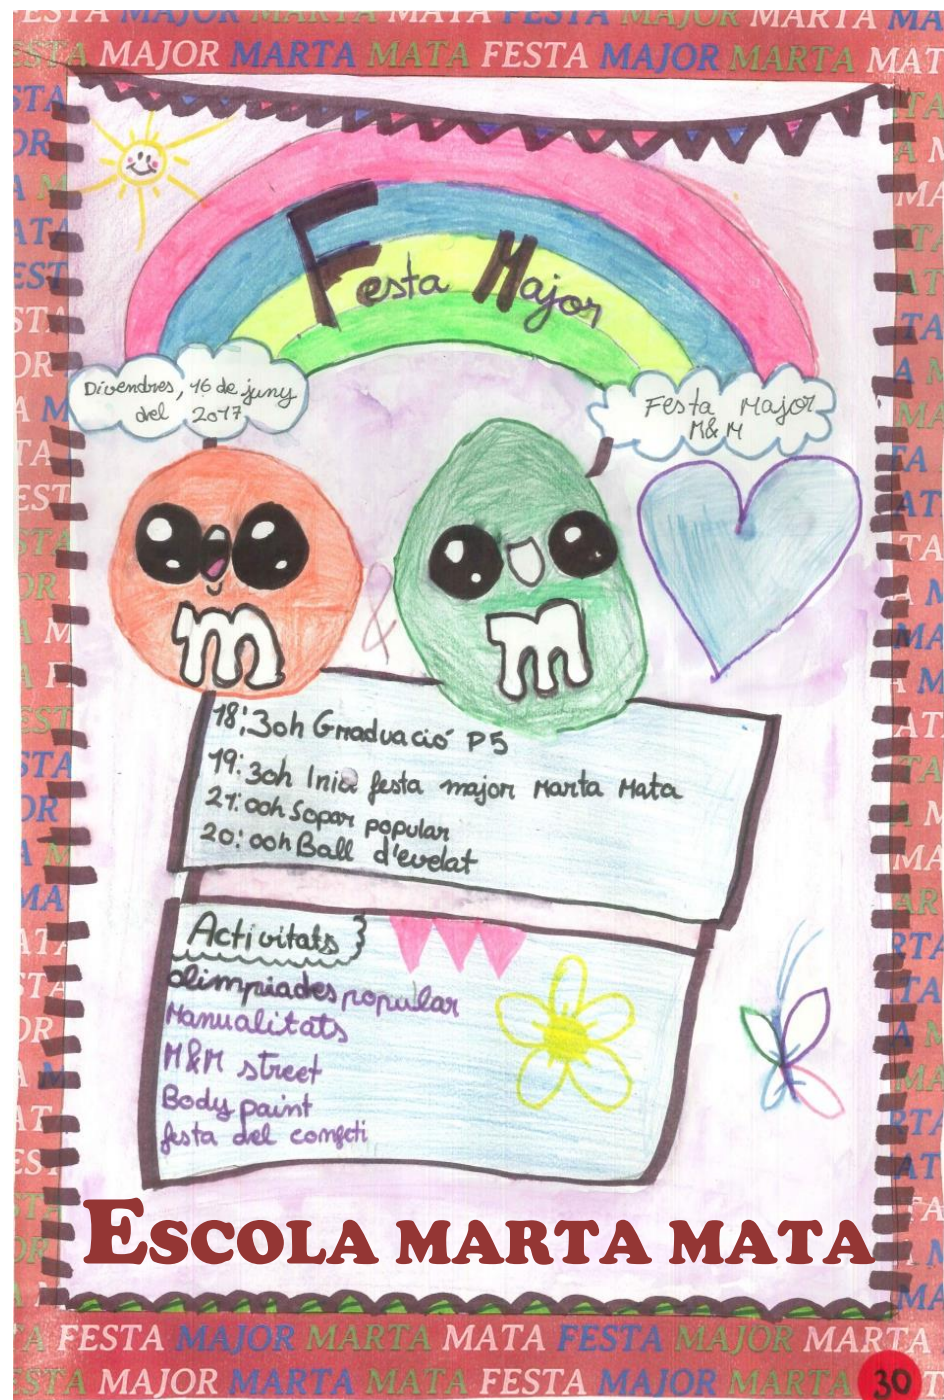 FESTA MAJOR MARTA MATA FESTA MAJOR MARTA MATA
FESTA MAJOR MARTA MATA FESTA MAJOR MARTA MAT
Festa Major
Divendres, 16 de juny
del 2017
Festa Major
M&M
m & m
18:30h Graduació P5
19:30h Inici festa major Marta Mata
21:00h Sopar popular
20:00h Ball d'evelat
Activitats
olimpiades popular
Manualitats
M&M street
Body paint
festa del confeti
ESCOLA MARTA MATA
FESTA MAJOR MARTA MATA FESTA MAJOR MARTA
STA MAJOR MARTA MATA FESTA MAJOR MARTA
30